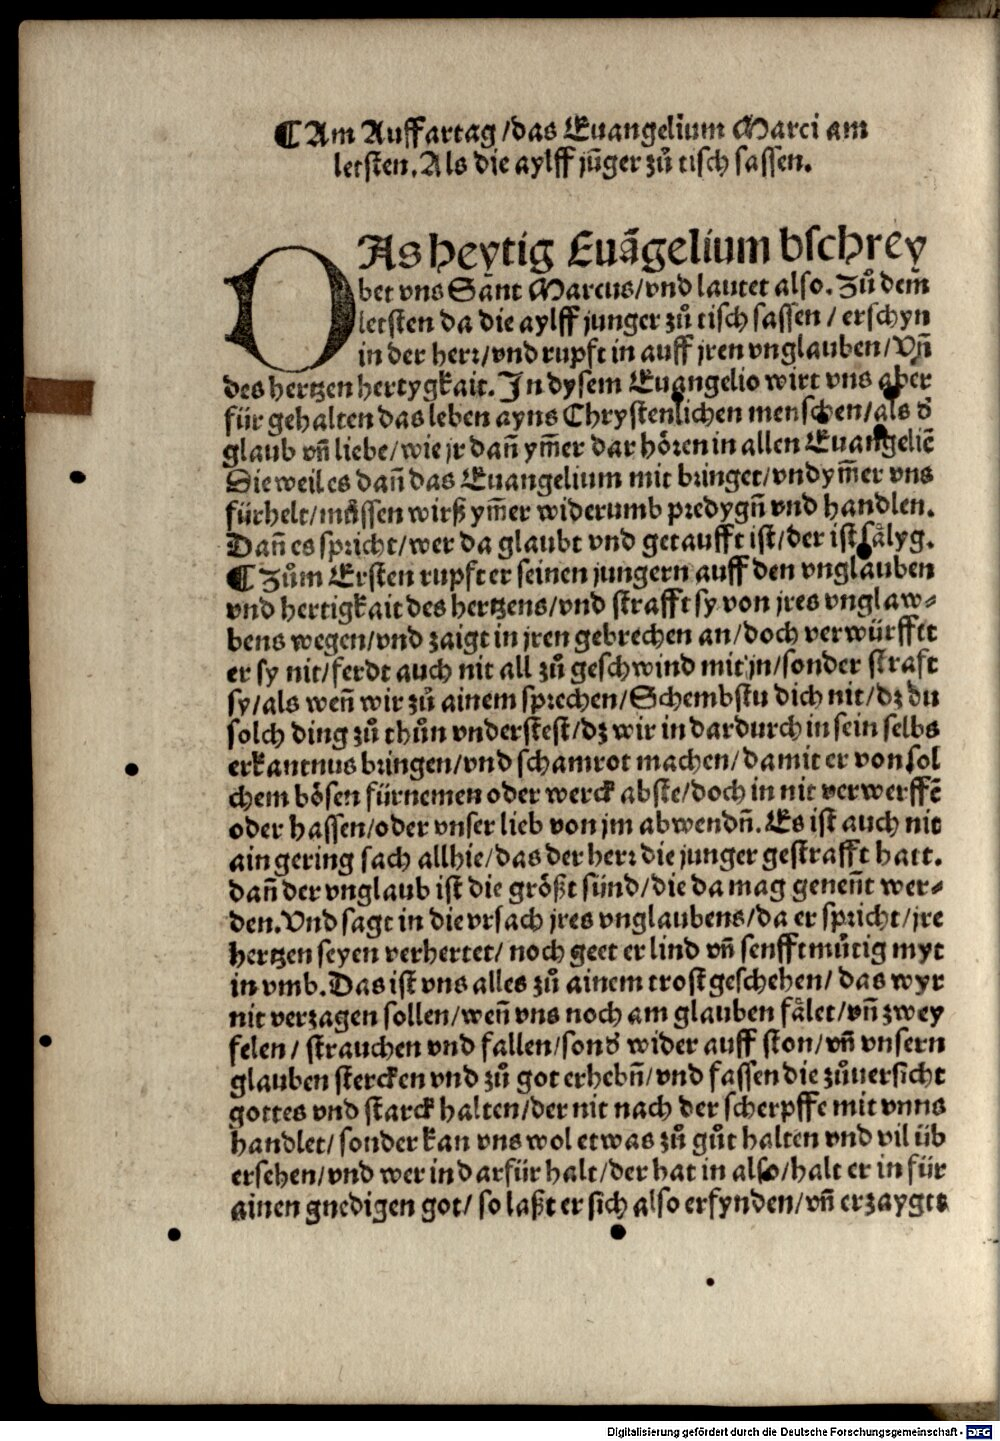 ¶Am Auffartag/das Euangelium Marci am
letsten. Als die aylff jũger zů tisch sassen.
DAs heytig Euãgelium bschrey
bet vns Sant Marcus/vnd lautet also. Zů dem
letsten da die aylff junger zů tisch sassen/ erschyn
in der herr/vnd rupft in auff jren vnglauben/Vñ
des hertzen hertygkait. In dysem Euangelio wirt vns aber
für gehalten das leben ayns Chrystenlichen menschen/als d̕
glaub vñ liebe/wie jr dañ ym̃er dar hören in allen Euangeliẽ
Die weil es dañ das Euangelium mit bringet/vnd ym̃er vns
fürhelt/můssen wirß ym̃er widerumb predygñ vnd handlen.
Dañ es spricht/wer da glaubt vnd getaufft ist/der ist sälyg.
¶Zům Ersten rupft er seinen jungern auff den vnglauben
vnd hertigkait des hertzens/vnd strafft sy von jres vnglaw-
bens wegen/vnd zaigt in jren gebrechen an/doch verwürfft
er sy nit/ferdt auch nit all zů geschwind mit jn/sonder straft
sy/als weñ wir zů ainem sprechen/Schembstu dich nit/dz du
solch ding zů thůn vnderstest/dz wir in dardurch in sein selbs
erkantnus bringen/vnd schamrot machen/damit er von sol
chem bösen fürnemen oder werck abste/doch in nit verwerffẽ
oder hassen/oder vnser lieb von jm abwendñ. Es ist auch nit
ain gering sach allhie/das der herr die junger gestrafft hatt.
dañ der vnglaub ist die größt sünd/die da mag geneñt wer-
den. Vnd sagt in die vrsach jres vnglaubens/da er spricht/jre
hertzen seyen verhertet/ noch geet er lind vñ senfftmůtig myt
in vmb. Das ist vns alles zů ainem trost geschehen/ das wyr
nit verzagen sollen/weñ vns noch am glauben fälet/vñ zwey
felen/ strauchen vnd fallen/sond̕ wider auff ston/vñ vnsern
glauben stercken vnd zů got erhebñ/vnd fassen die zůuersicht
gottes vnd starck halten/der nit nach der scherpffe mit vnns
handlet/sonder kan vns wol etwas zů gůt halten vnd vil üb
ersehen/vnd wer in darfür halt/der hat in also/halt er in für
ainen gnedigen got/ so laßt er sich also erfynden/vñ erzaygts
Digitalisierung gefördert durch die Deutsche Forschungsgemeinschaft - DFG